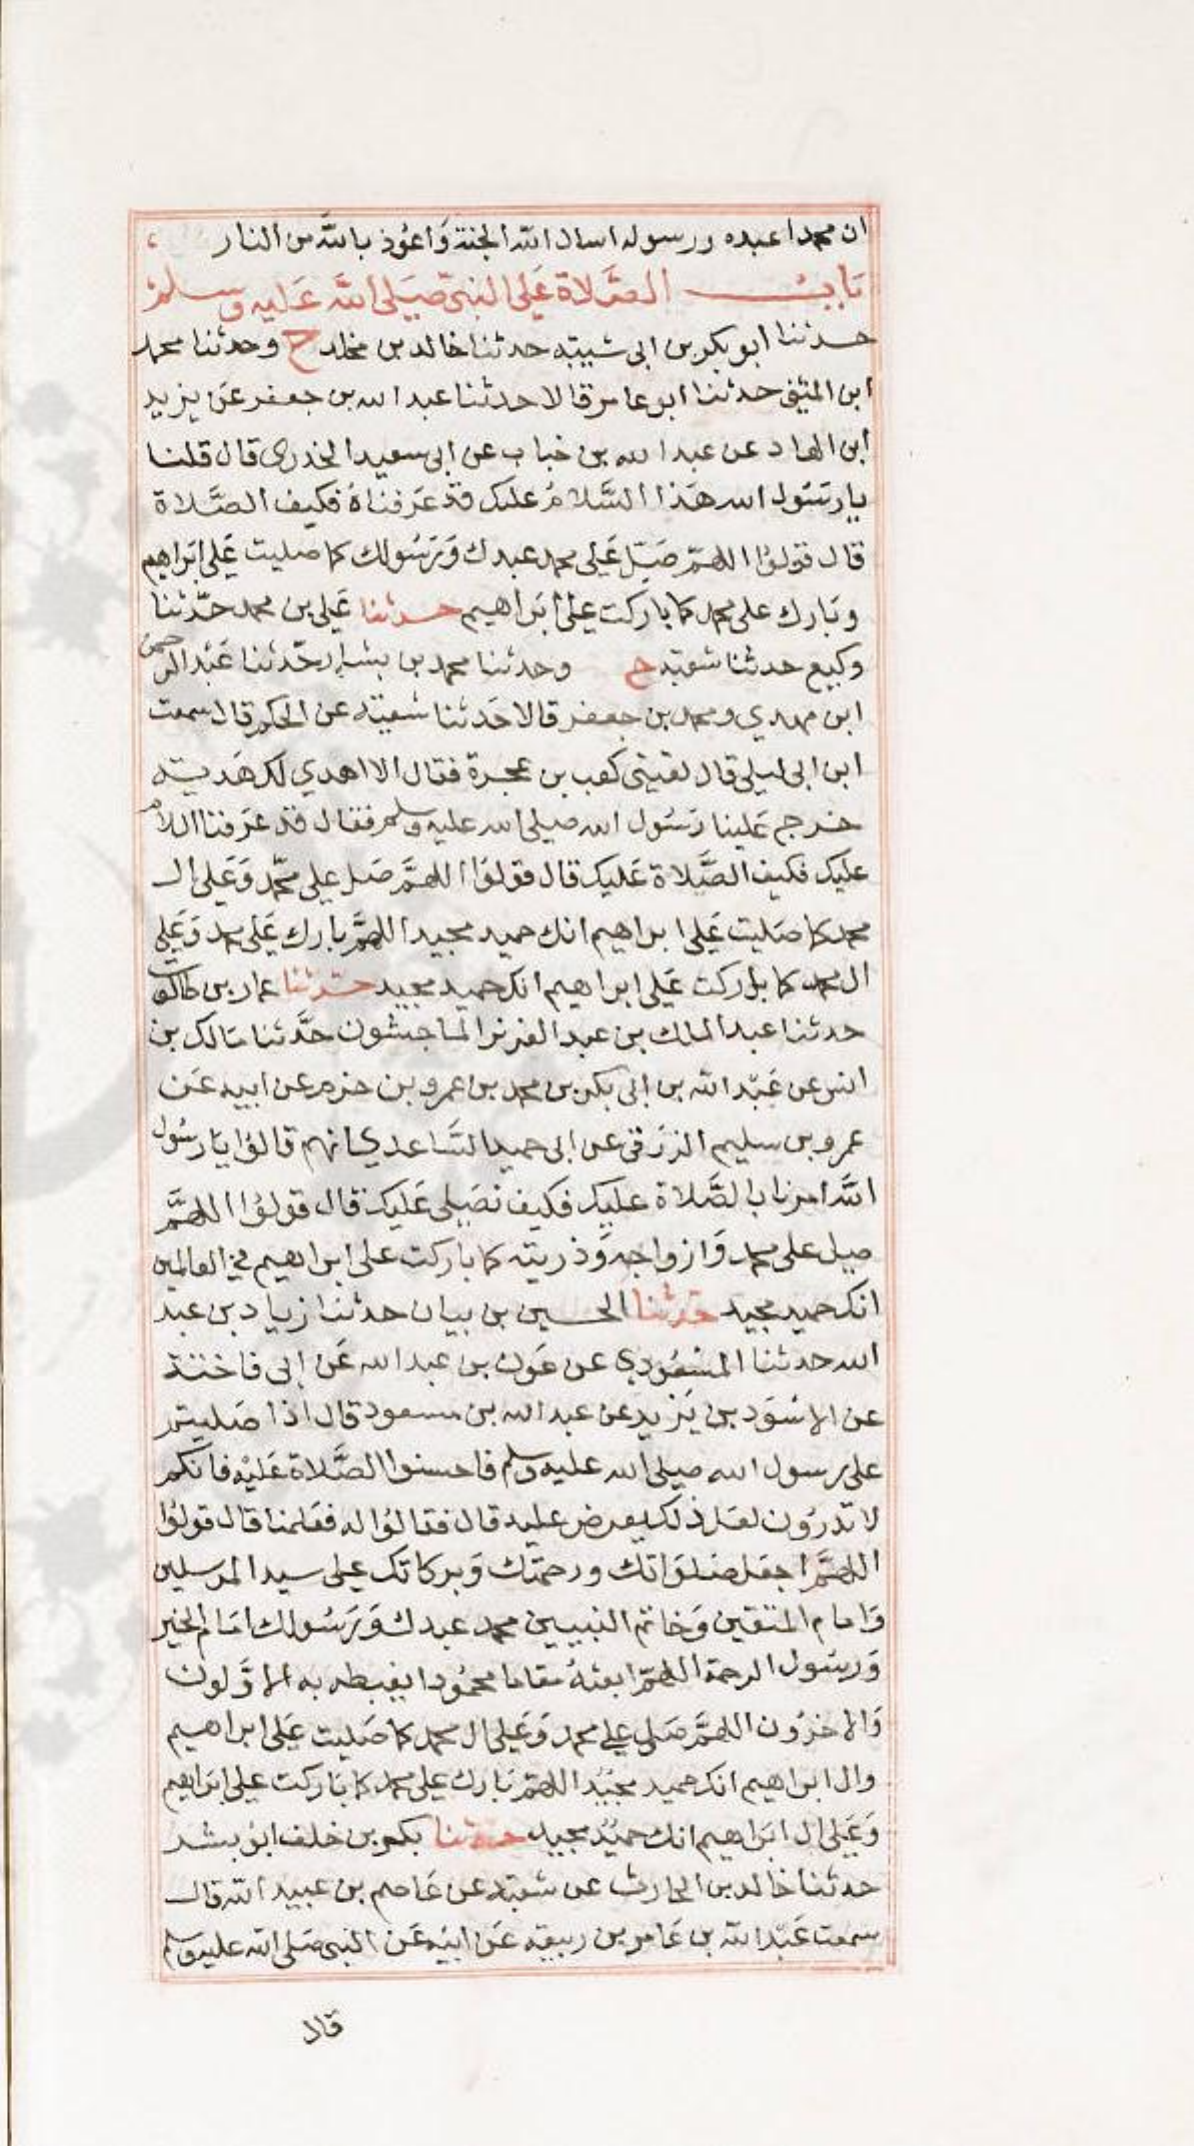 ان محمدا عبده ورسوله اسال الله الجنة وَاعُوذ باللَّه من النار
بَابُ الصَّلاة عَلى النبي صَلى اللَّه عَليه وسلم
حدثنا ابو بكر بن ابى شيبة حدثنا خالد بن مخلد ح وحدثنا محمد
ابن المثنى حدثنا ابو عامر قالا حدثنا عبد الله بن جعفر عن يزيد
ابن الهاد عن عبد الله بن خباب عن ابى سعيد الخدرى قال قلنا
يا رسُول الله هَذا السَّلامُ عليك قد عَرفناهُ فكيف الصَّلاة
قال قولوُا اللهمّ صَلّ عَلى محمد عبدك وَرَسُولك كما صليت عَلى ابَراهيم
وبَارك على محمد كما باركت على ابَراهيم حدثنا عَلى بن محمد حدّثنا
وكيع حدثنا شعبة ح وحدثنا محمد بن بشار حدّثنا عَبْد الرحمن
ابن مهدي ومحمد بن جعفر قالا حَدثنا شعبة عن الحكم قال سمعت
ابن ابى ليلى قال لقيني كعب بن عجرة فقال الا اهدي لك هَدية
خرج عَلينا رَسُول الله صلى الله عليه وسلم فقال قد عَرفنا السلام
عليك فكيف الصَّلاة عَليك قال قولوَا اللهمَّ صَل على محَّمد وَعَلى ال
محمد كما صَليت عَلى ابراهيم انك حميد مجيد اللهمَّ بارك عَلى محمد وَعَلى
ال محمد كما باركت عَلى ابراهيم انك حميد مجيد حدثنا عمار بن طالوت
حدثنا عبد الملك بن عبد العزيز الماجشون حَدَّثنا مَالك بن
انس عن عَبْد الله بن ابى بكر بن محمد بن عمرو بن حزم عن ابيه عَن
عمرو بن سليم الزرَقى عن ابى حميد السَّاعدي انهم قالوُا يَا رسُول
اللَّه امرنا بالصَّلاة عليك فكيف نصَلى عَليك قال قولوُا اللهمَّ
صل على محمد وَازواجه وَذريته كما باركت على ابراهيم في العالمين
انك حميد مجيد حدثنا الحسين بن بيان حدثنا زياد بن عبد
الله حدثنا المسْعُودي عن عَون بن عبد الله عَن ابى فاختة
عن الاسْوَد بن يَزيد عن عبد الله بن مسعود قال اذا صَليتم
على رسول الله صلى الله عليه وسلم فاحسنوا الصَّلاة عَليْه فانكم
لا تدرُون لعَل ذلك يعرض عليه قال فقالوُا له فعَلمنا قال قولوُا
اللهمَّ اجعَل صَلوَاتك ورحمَتك وَبركاتك على سيد المرسلين
وَامام المتقين وَخاتم النبيين محمد عبدك وَرَسُولك امَام الخير
وَرسُول الرحمة اللهمّ ابعثهُ مقاما محمُودا يغبطه به الاوَّلون
وَالاخرُون اللهمَّ صَلى على محمد وَعَلى ال محمد كما صَليت عَلى ابراهيم
وال ابراهيم انك حميد مجيْد اللهمّ بَارك على محمد كما بَاركت على ابَراهيم
وَعَلى ال ابَراهيم انك حميُد مجيد حدثنا بكر بن خلف ابوُ بشر
حدثنا خالد بن الحارث عن شعبة عن عَاصم بن عبيد الله قال
سمعت عَبْد الله بن عَامر بن ربيعة عَن ابيْه عَن النبي صَلى الله عليه وسلم
قال